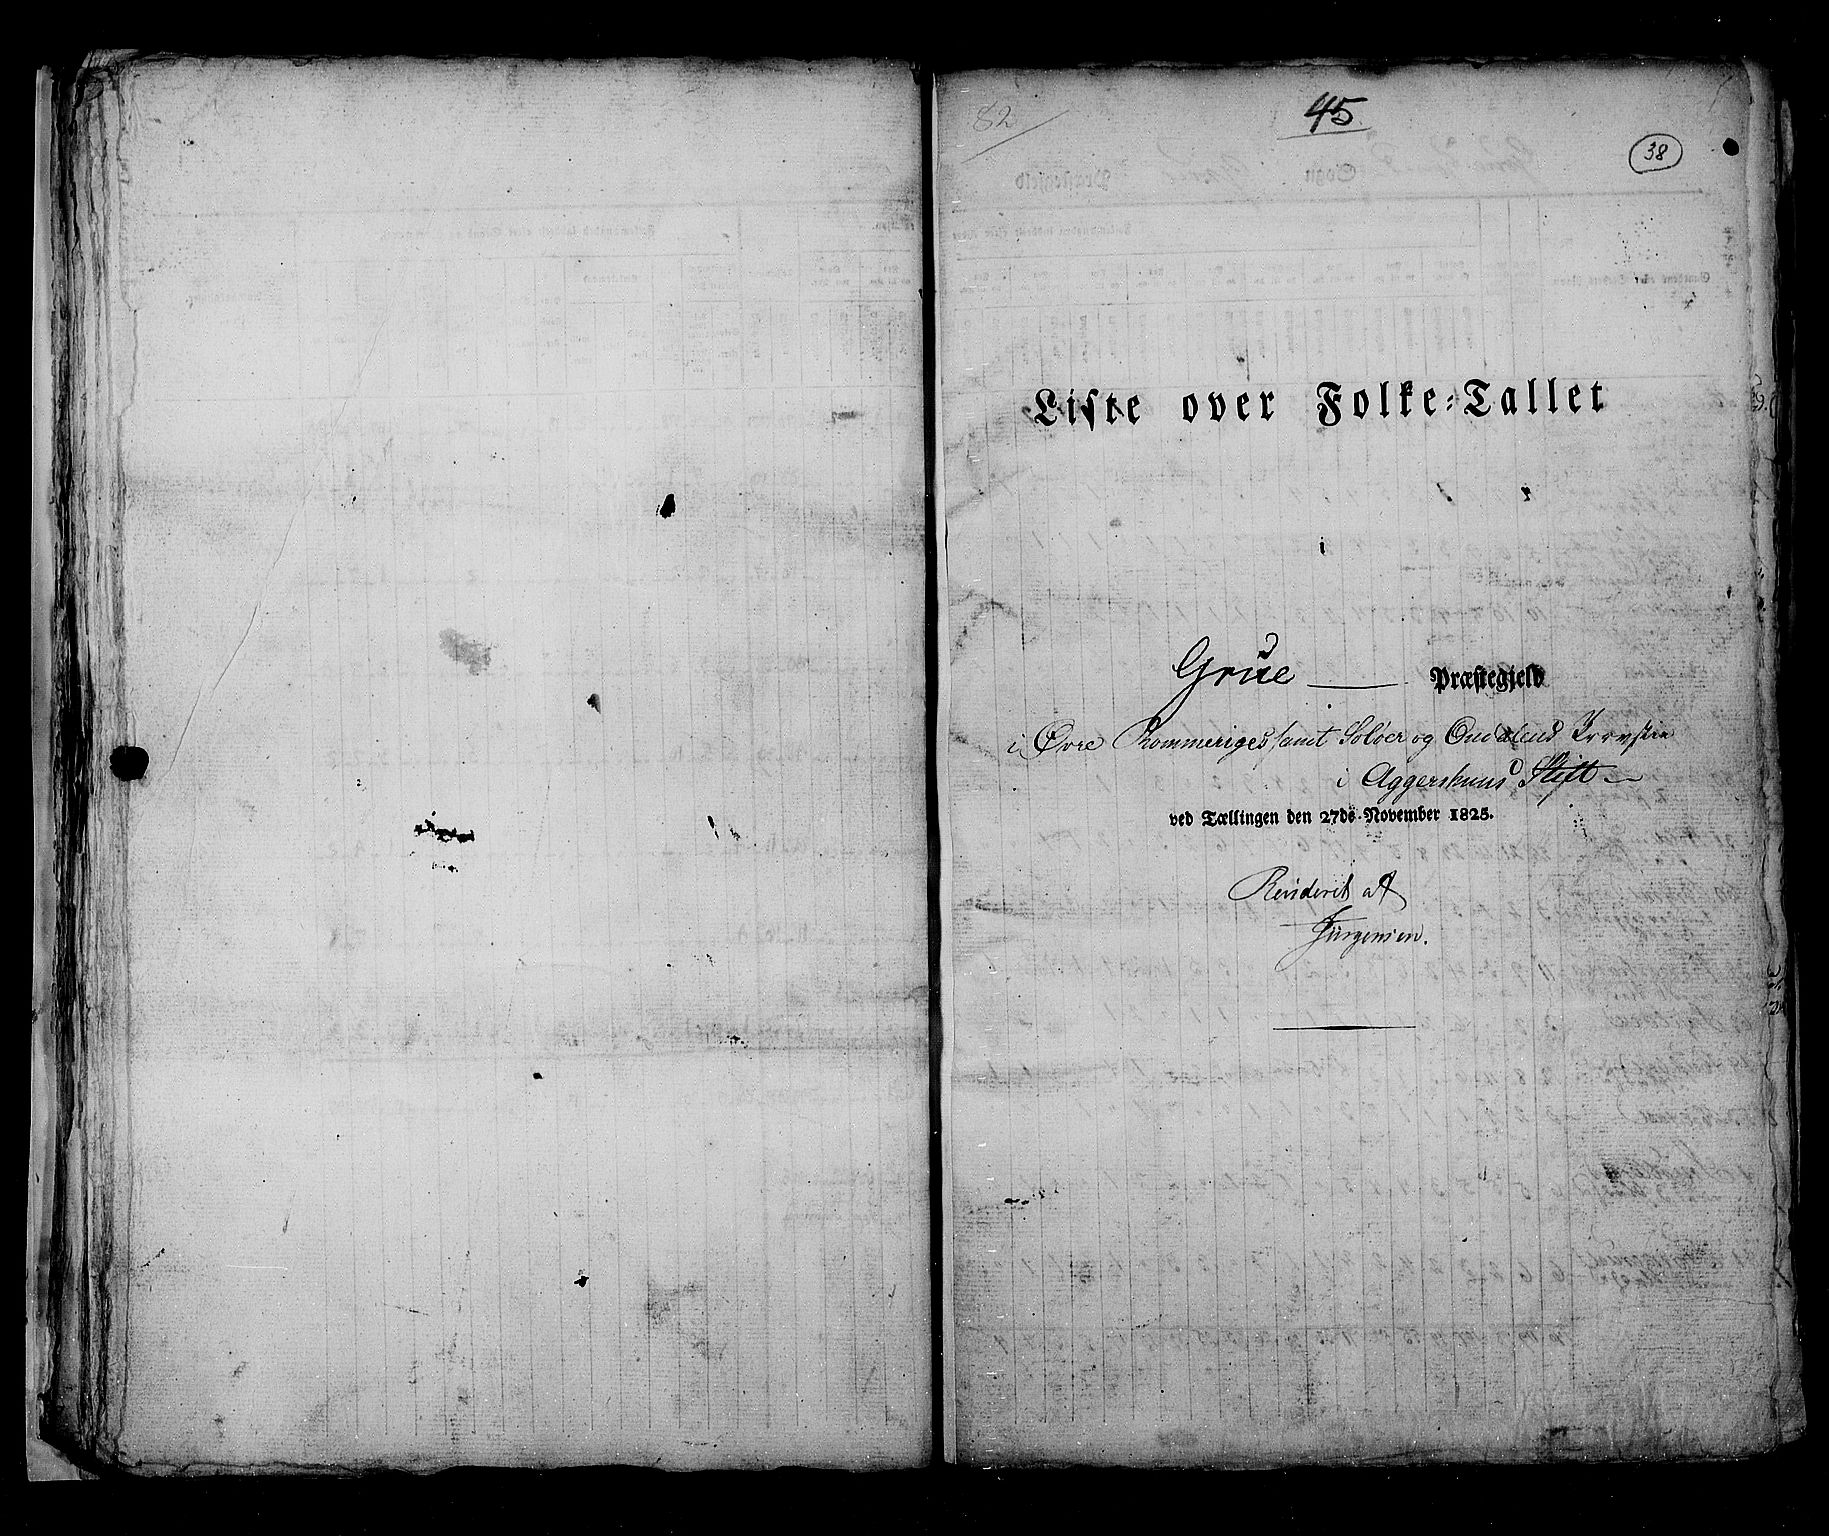 82
45
38
Liste over Folke-Tallet
i
Grue Præstegjeld
i Øvre Rommeriges samt Soløer og Oudalens Provstie
i Aggershuus Stift
ved Tællingen den 27de November 1825.
Revideret af
Jürgensen.